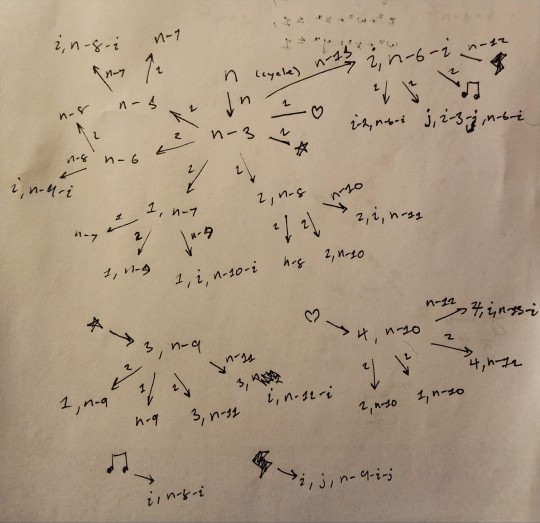 i, n-8-i
n-7
n-7
2
n-5
n-8
2
2
n-8
n-6
2
i, n-9-i
n (cycle)
n
n-3
1
♡
2
☆
n-13
i, n-6-i
n-12
2
2
2
♫
i-2, n-6-i
j, i-3-j, n-6-i
2
2
1, n-7
1
n-7
2
n-9
1, n-9
1, i, n-10-i
2, n-8
n-10
2, i, n-11
2
2
n-8
2, n-10
☆
3, n-9
n-11
2
1
2
3,
i, n-12-i
1, n-9
n-9
3, n-11
♡
4, n-10
n-12
4, i, n-13-i
2
4, n-12
2
2
2, n-10
1, n-10
♫
i, n-8-i
i, j, n-9-i-j